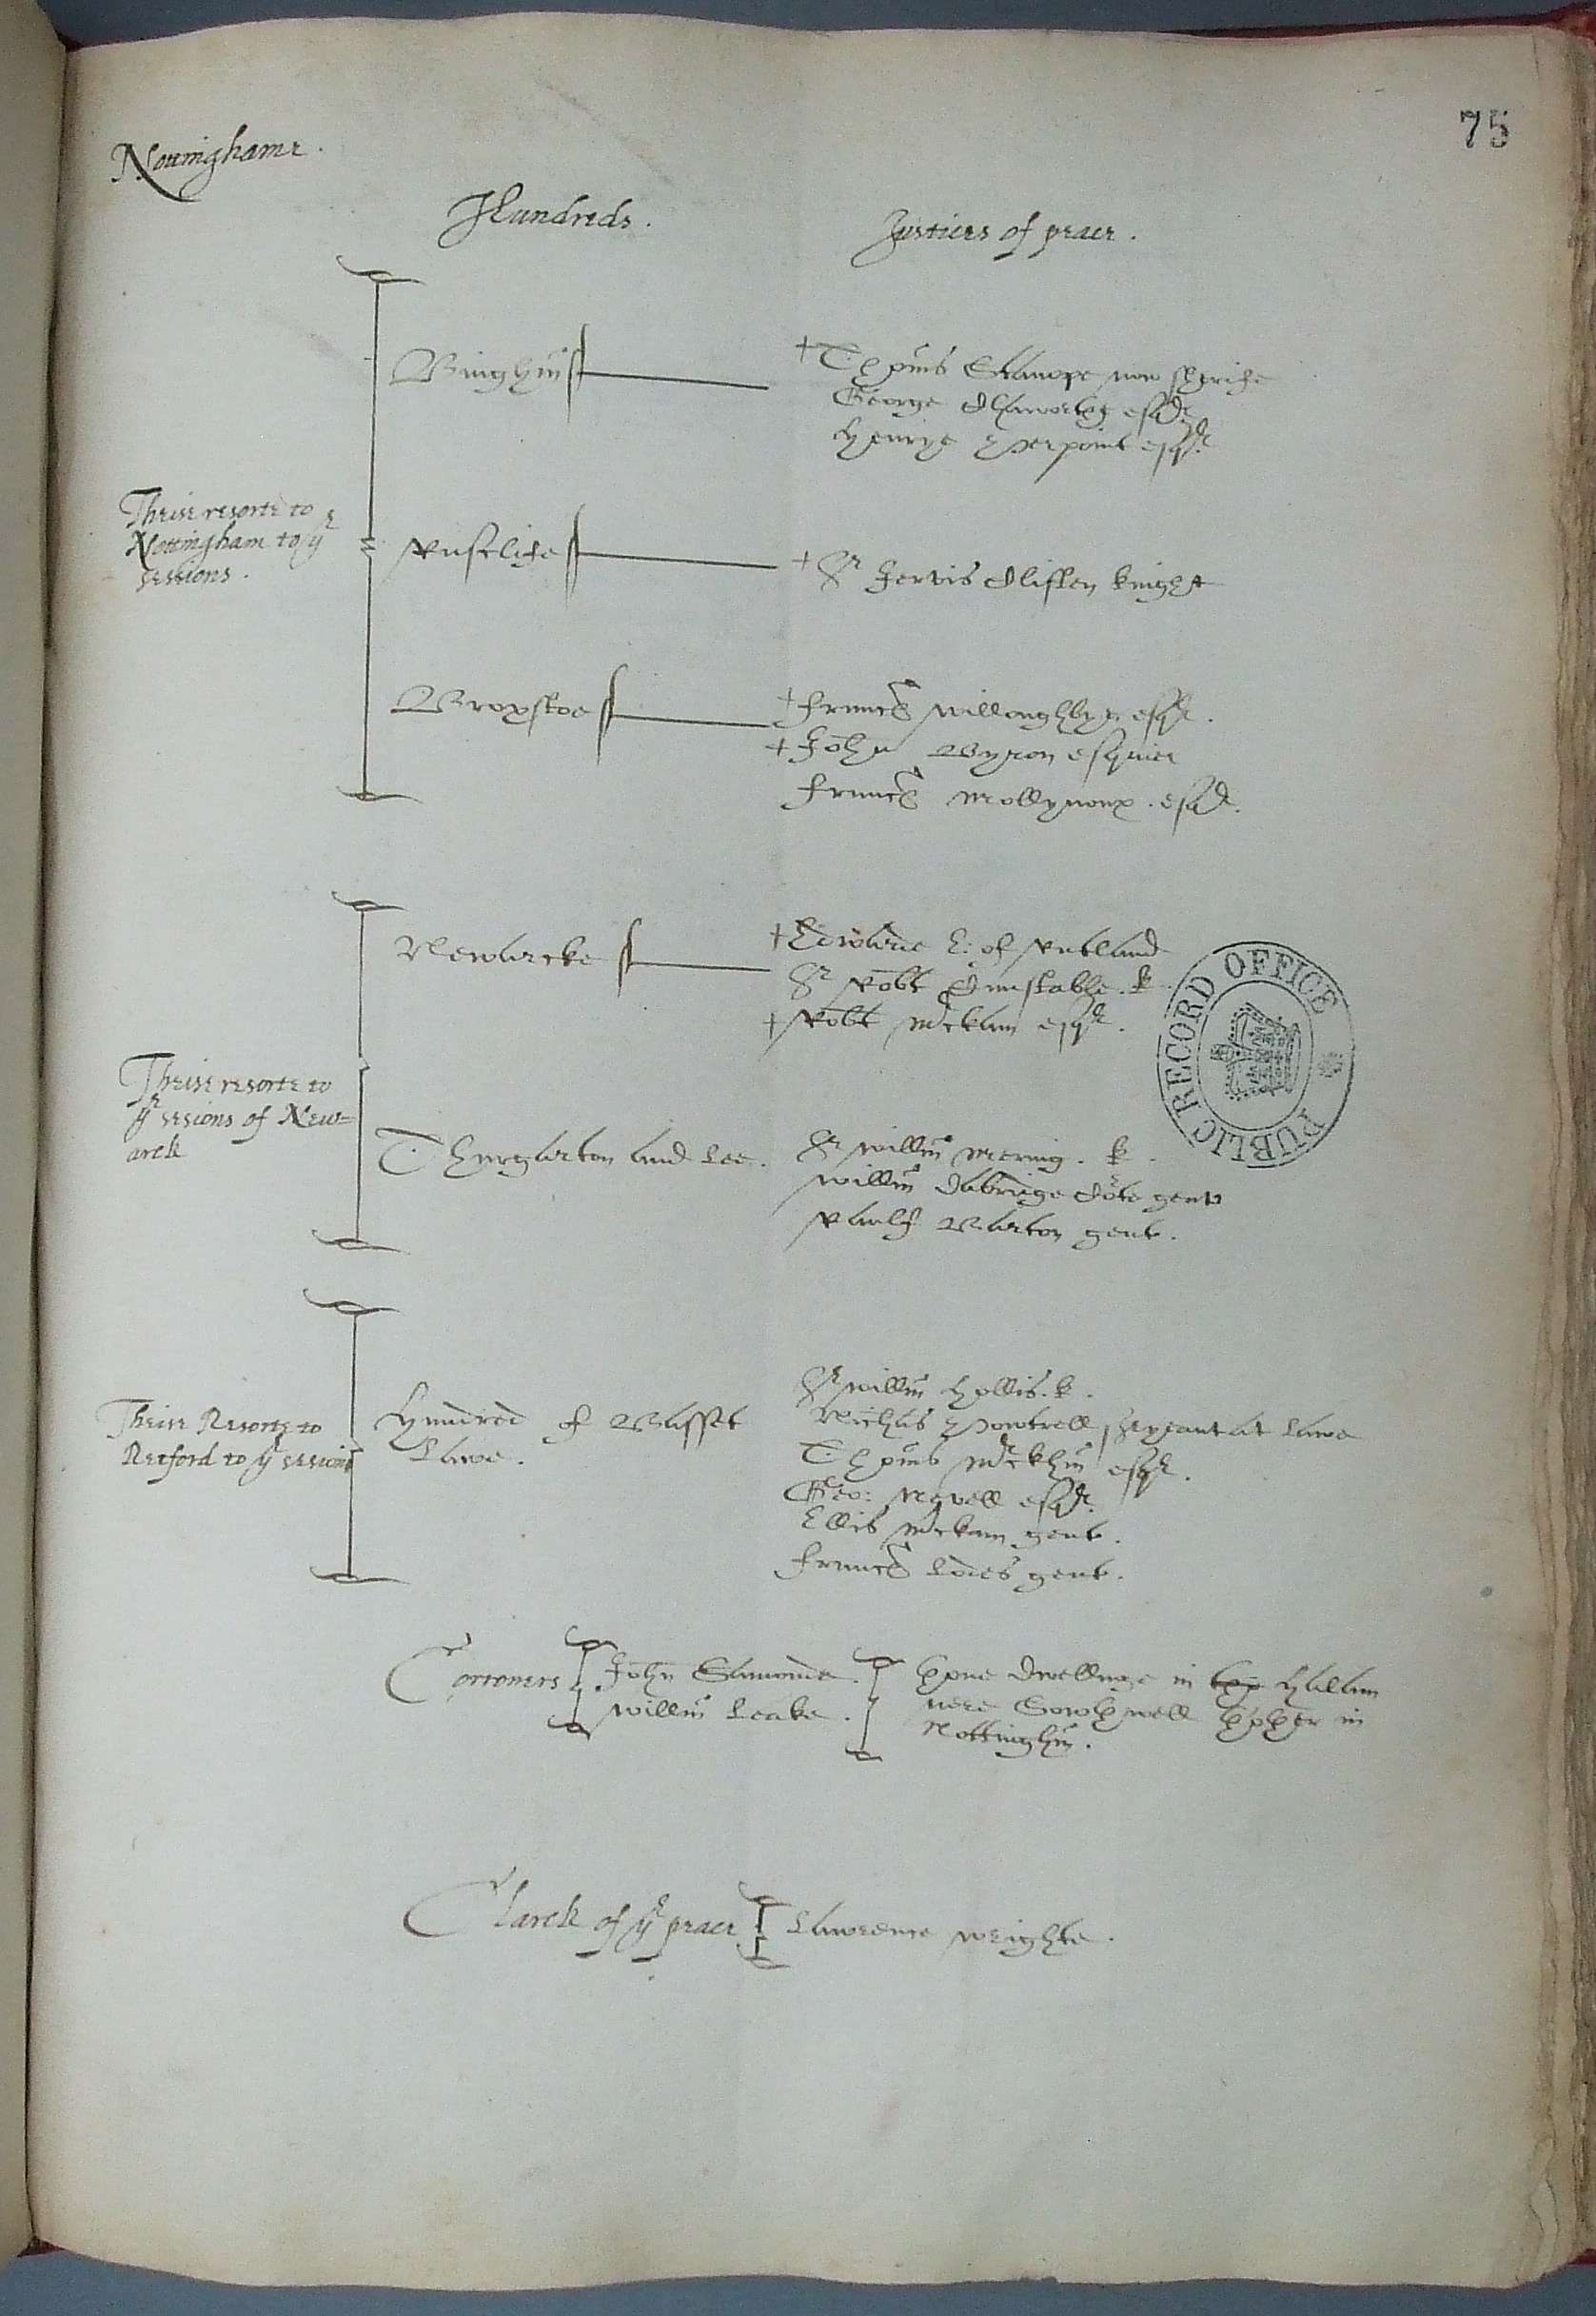 75
Nottinghame .
Hundreds .
Justices of peace .
Binghm̃
+ Thom̃s Stanope now sherife
George Chaworthe esqr
Henrye Perpoint esqr
These resorte to
Nottingham to ye
sessions .
Rusclife
+ Sr Jervis Clifton knight
Broxstoe
+ Francs Willoughbye esqr .
+ John Byron esquier
Francs Mollynoux . esqr .
Newarcke
+ Edwarde E: of Rutland
Sr Robt Cunstable . k .
+ Robt Mrckam esqr .
These resorte to
ye sesions of New=
arck
Thurgarton and Lee .
Sr Willm̃ Mering . k .
Willm̃ Dabrige Cote gent
Raulf Barton gent .
These Resorte to
Retford to ye sesions
Hundred of Basset
Lawe .
Sr Willm̃ Hollis . k .
Nichus Powtrell Sergeant at Lawe
Thom̃s Mrckhm̃ esqr .
Geo: Nevell esqr .
Ellis Mrckam gent .
Francs Lodes gent .
Coroners
John Stanonde .
Willm̃ Leake .
thone dwellinge in thp Hallam
nere Sowthwell thother in
Nottinghm̃ .
Clarck of ye peace
Lawrence Wrighte .
PUBLIC RECORD OFFICE